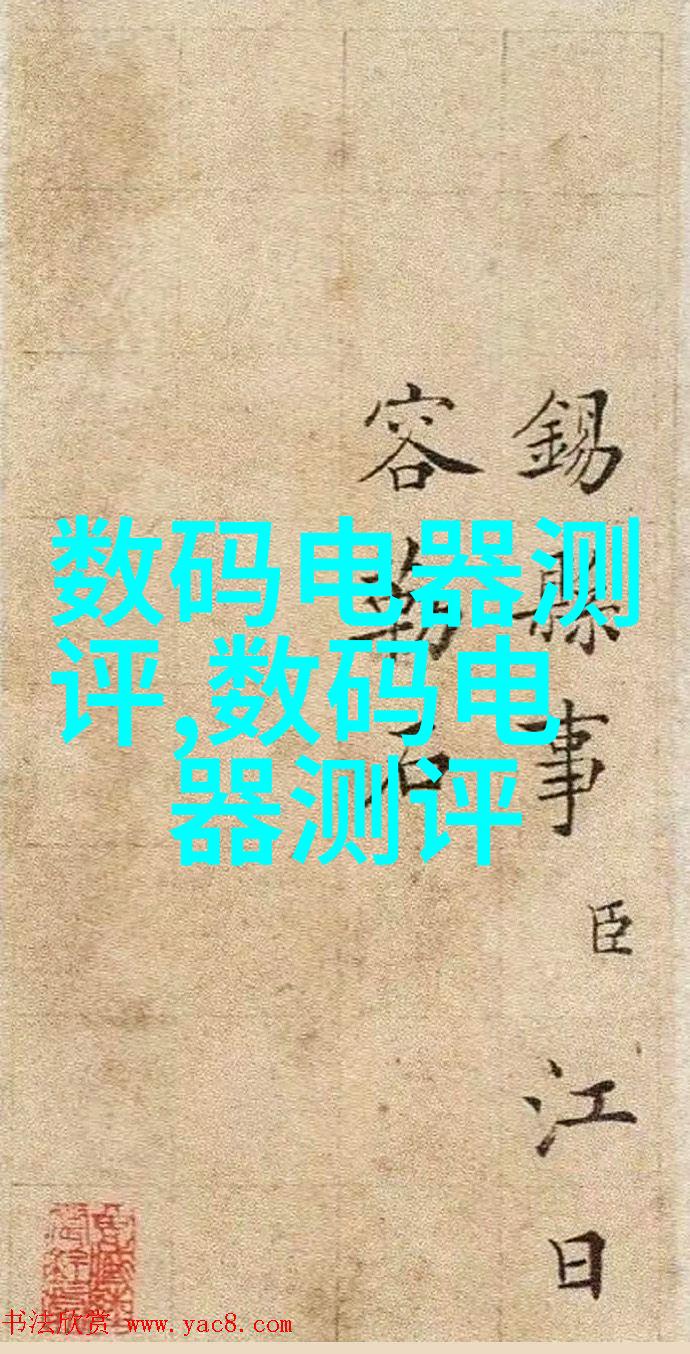 数码电器测
评,数码电
器测评
錫縣事臣江日
容勒石
书法欣赏 www.yac8.com